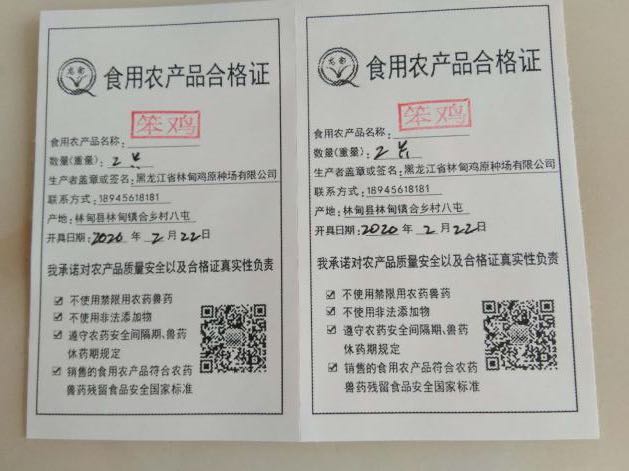 食用农产品合格证
食用农产品名称：笨鸡
数量(重量)：2只
生产者盖章或签名：黑龙江省林甸鸡原种场有限公司
联系方式：18945618181
产地：林甸县林甸镇合乡村八屯
开具日期：2020 年 2 月 22 日
我承诺对农产品质量安全以及合格证真实性负责
☑ 不使用禁限用农药兽药
☑ 不使用非法添加物
☑ 遵守农药安全间隔期、兽药
休药期规定
☑ 销售的食用农产品符合农药
兽药残留食品安全国家标准
食用农产品合格证
食用农产品名称：笨鸡
数量(重量)：2只
生产者盖章或签名：黑龙江省林甸鸡原种场有限公司
联系方式：18945618181
产地：林甸县林甸镇合乡村八屯
开具日期：2020 年 2 月 22 日
我承诺对农产品质量安全以及合格证真实性负责
☑ 不使用禁限用农药兽药
☑ 不使用非法添加物
☑ 遵守农药安全间隔期、兽药
休药期规定
☑ 销售的食用农产品符合农药
兽药残留食品安全国家标准